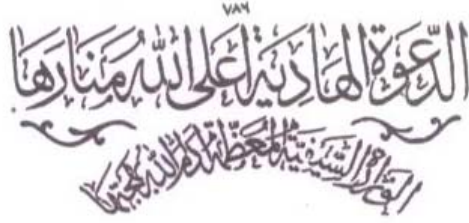 ٧٨٦
الدَّعْوَةُ الهَادِيَةُ اَعْلَى اللهُ مَنَارَهَا
الوزارة السَّيْفِيَّة المُعَظَّمَة ادام الله